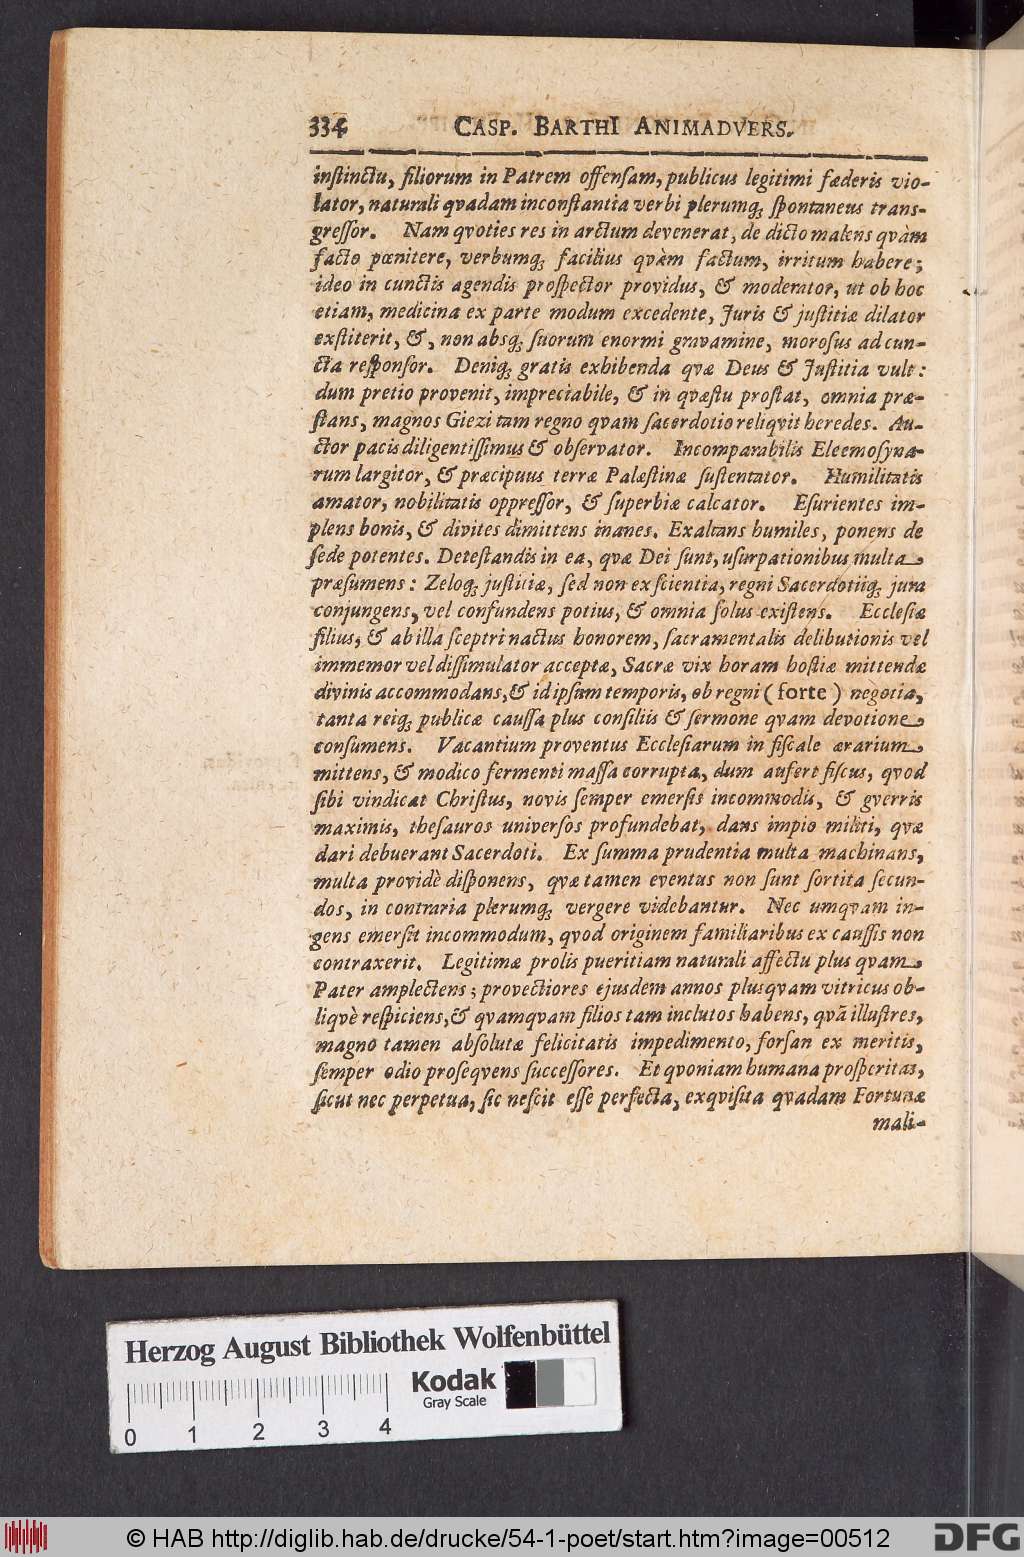 334 CASP. BARTHI ANIMADVERS.
instinctu, filiorum in Patrem offensam, publicus legitimi fæderis vio-
lator, naturali qvadam inconstantia verbi plerumq; spontaneus trans-
gressor. Nam qvoties res in arctum devenerat, de dicto malens qvàm
facto pœnitere, verbumq; facilius qvàm factum, irritum habere;
ideo in cunctis agendis prospector providus, & moderator, ut ob hoc
etiam, medicina ex parte modum excedente, Juris & justitiæ dilator
exstiterit, &, non absq; suorum enormi gravamine, morosus ad cun-
cta responsor. Deniq; gratis exhibenda qvæ Deus & Justitia vult:
dum pretio provenit, impreciabile, & in qvæstu prostat, omnia præ-
stans, magnos Giezi tam regno qvam sacerdotio reliqvit heredes. Au-
ctor pacis diligentissimus & observator. Incomparabilis Eleemosyna-
rum largitor, & præcipuus terræ Palæstinæ sustentator. Humilitatis
amator, nobilitatis oppressor, & superbiæ calcator. Esurientes im-
plens bonis, & divites dimittens inanes. Exaltans humiles, ponens de
sede potentes. Detestandis in ea, qvæ Dei sunt, usurpationibus multa
præsumens: Zeloq; justitiæ, sed non ex scientia, regni Sacerdotiiq; jura
conjungens, vel confundens potius, & omnia solus existens. Ecclesiæ
filius, & ab illa sceptri nactus honorem, sacramentalis delibutionis vel
immemor vel dissimulator acceptæ, Sacræ vix horam hostiæ mittendæ
divinis accommodans, & id ipsum temporis, ob regni (forte) negotia,
tanta reiq; publicæ caussa plus consiliis & sermone qvam devotione
consumens. Vacantium proventus Ecclesiarum in fiscale ærarium
mittens, & modico fermenti massa corrupta, dum aufert fiscus, qvod
sibi vindicat Christus, novis semper emersis incommodis, & gverris
maximis, thesauros universos profundebat, dans impio militi, qvæ
dari debuerant Sacerdoti. Ex summa prudentia multa machinans,
multa providè disponens, qvæ tamen eventus non sunt sortita secun-
dos, in contraria plerumq; vergere videbantur. Nec umqvam in-
gens emersit incommodum, qvod originem familiaribus ex caussis non
contraxerit. Legitimæ prolis pueritiam naturali affectu plus qvam
Pater amplectens; provectiores ejusdem annos plusqvam vitricus ob-
liqvè respiciens, & qvamqvam filios tam inclutos habens, qvã illustres,
magno tamen absolutæ felicitatis impedimento, forsan ex meritis,
semper odio proseqvens successores. Et qvoniam humana prosperitas,
sicut nec perpetua, sic nescit esse perfecta, exqvisita qvadam Fortunæ
mali-
Herzog August Bibliothek Wolfenbüttel
Kodak
Gray Scale
0 1 2 3 4
© HAB http://diglib.hab.de/drucke/54-1-poet/start.htm?image=00512
DFG